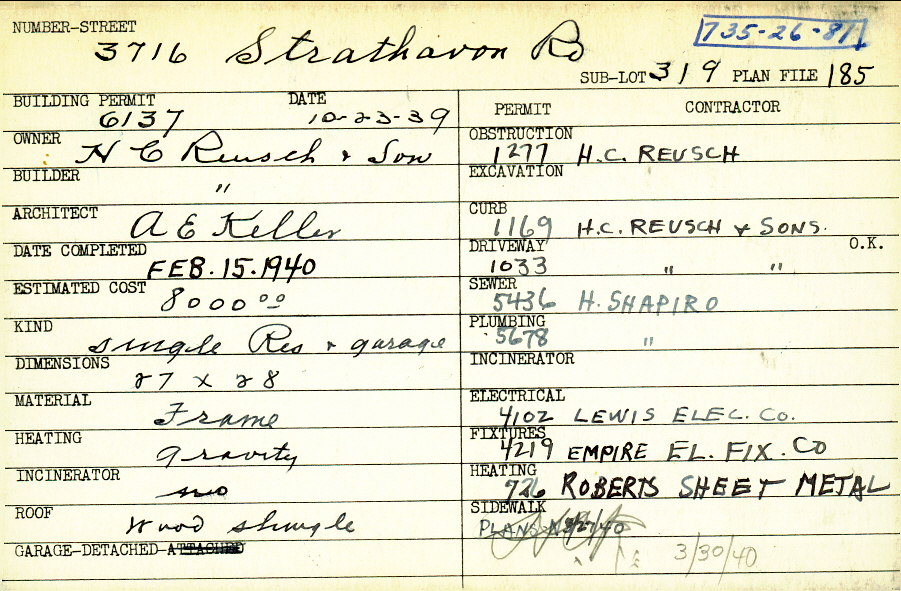 NUMBER-STREET
3716 Strathavon Rd
735-26-81
SUB-LOT 319 PLAN FILE 185
BUILDING PERMIT DATE
6137 10-23-39
OWNER
H C Reusch & Son
BUILDER
"
ARCHITECT
A E Keller
DATE COMPLETED
FEB. 15. 1940
ESTIMATED COST
8000 00
KIND
single Res & garage
DIMENSIONS
27 x 28
MATERIAL
Frame
HEATING
gravity
INCINERATOR
no
ROOF
Wood shingle
GARAGE-DETACHED-ATTACHED
PERMIT CONTRACTOR
OBSTRUCTION
1277 H.C. REUSCH
EXCAVATION
CURB
1169 H.C. REUSCH & SONS.
DRIVEWAY O.K.
1033 " "
SEWER
5436 H. SHAPIRO
PLUMBING
5678 "
INCINERATOR
ELECTRICAL
4102 LEWIS ELEC. CO.
FIXTURES
4219 EMPIRE EL. FIX. CO
HEATING
726 ROBERTS SHEET METAL
SIDEWALK
PLANS
3/30/40